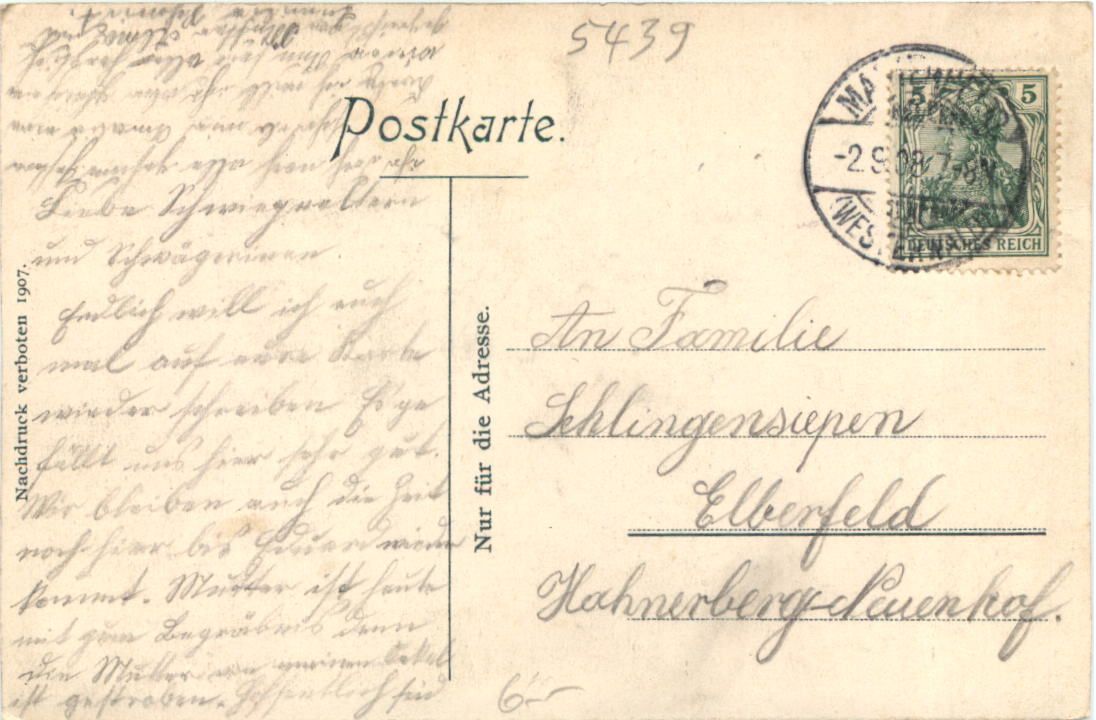 5439
Postkarte.
MARIENBERG
-2.9.08.7-8N
(WESTERWALD)
5 5
DEUTSCHES REICH
Nachdruck verboten 1907.
Nur für die Adresse.
An Familie
Schlingensiepen
Elberfeld
Hahnerberg-Neuenhof.
Liebe Schwiegereltern
und Schwägerinnen
Endlich will ich euch
mal auf eure Karte
wieder schreiben Es ge
fällt uns hier sehr gut.
Wir bleiben auch die Zeit
noch hier bis Eduard wieder
kommt. Mutter ist heute
mit zum Begräbnis denn
die Mutter von meinem Onkel
ist gestroben. Hoffentlich seid
6-